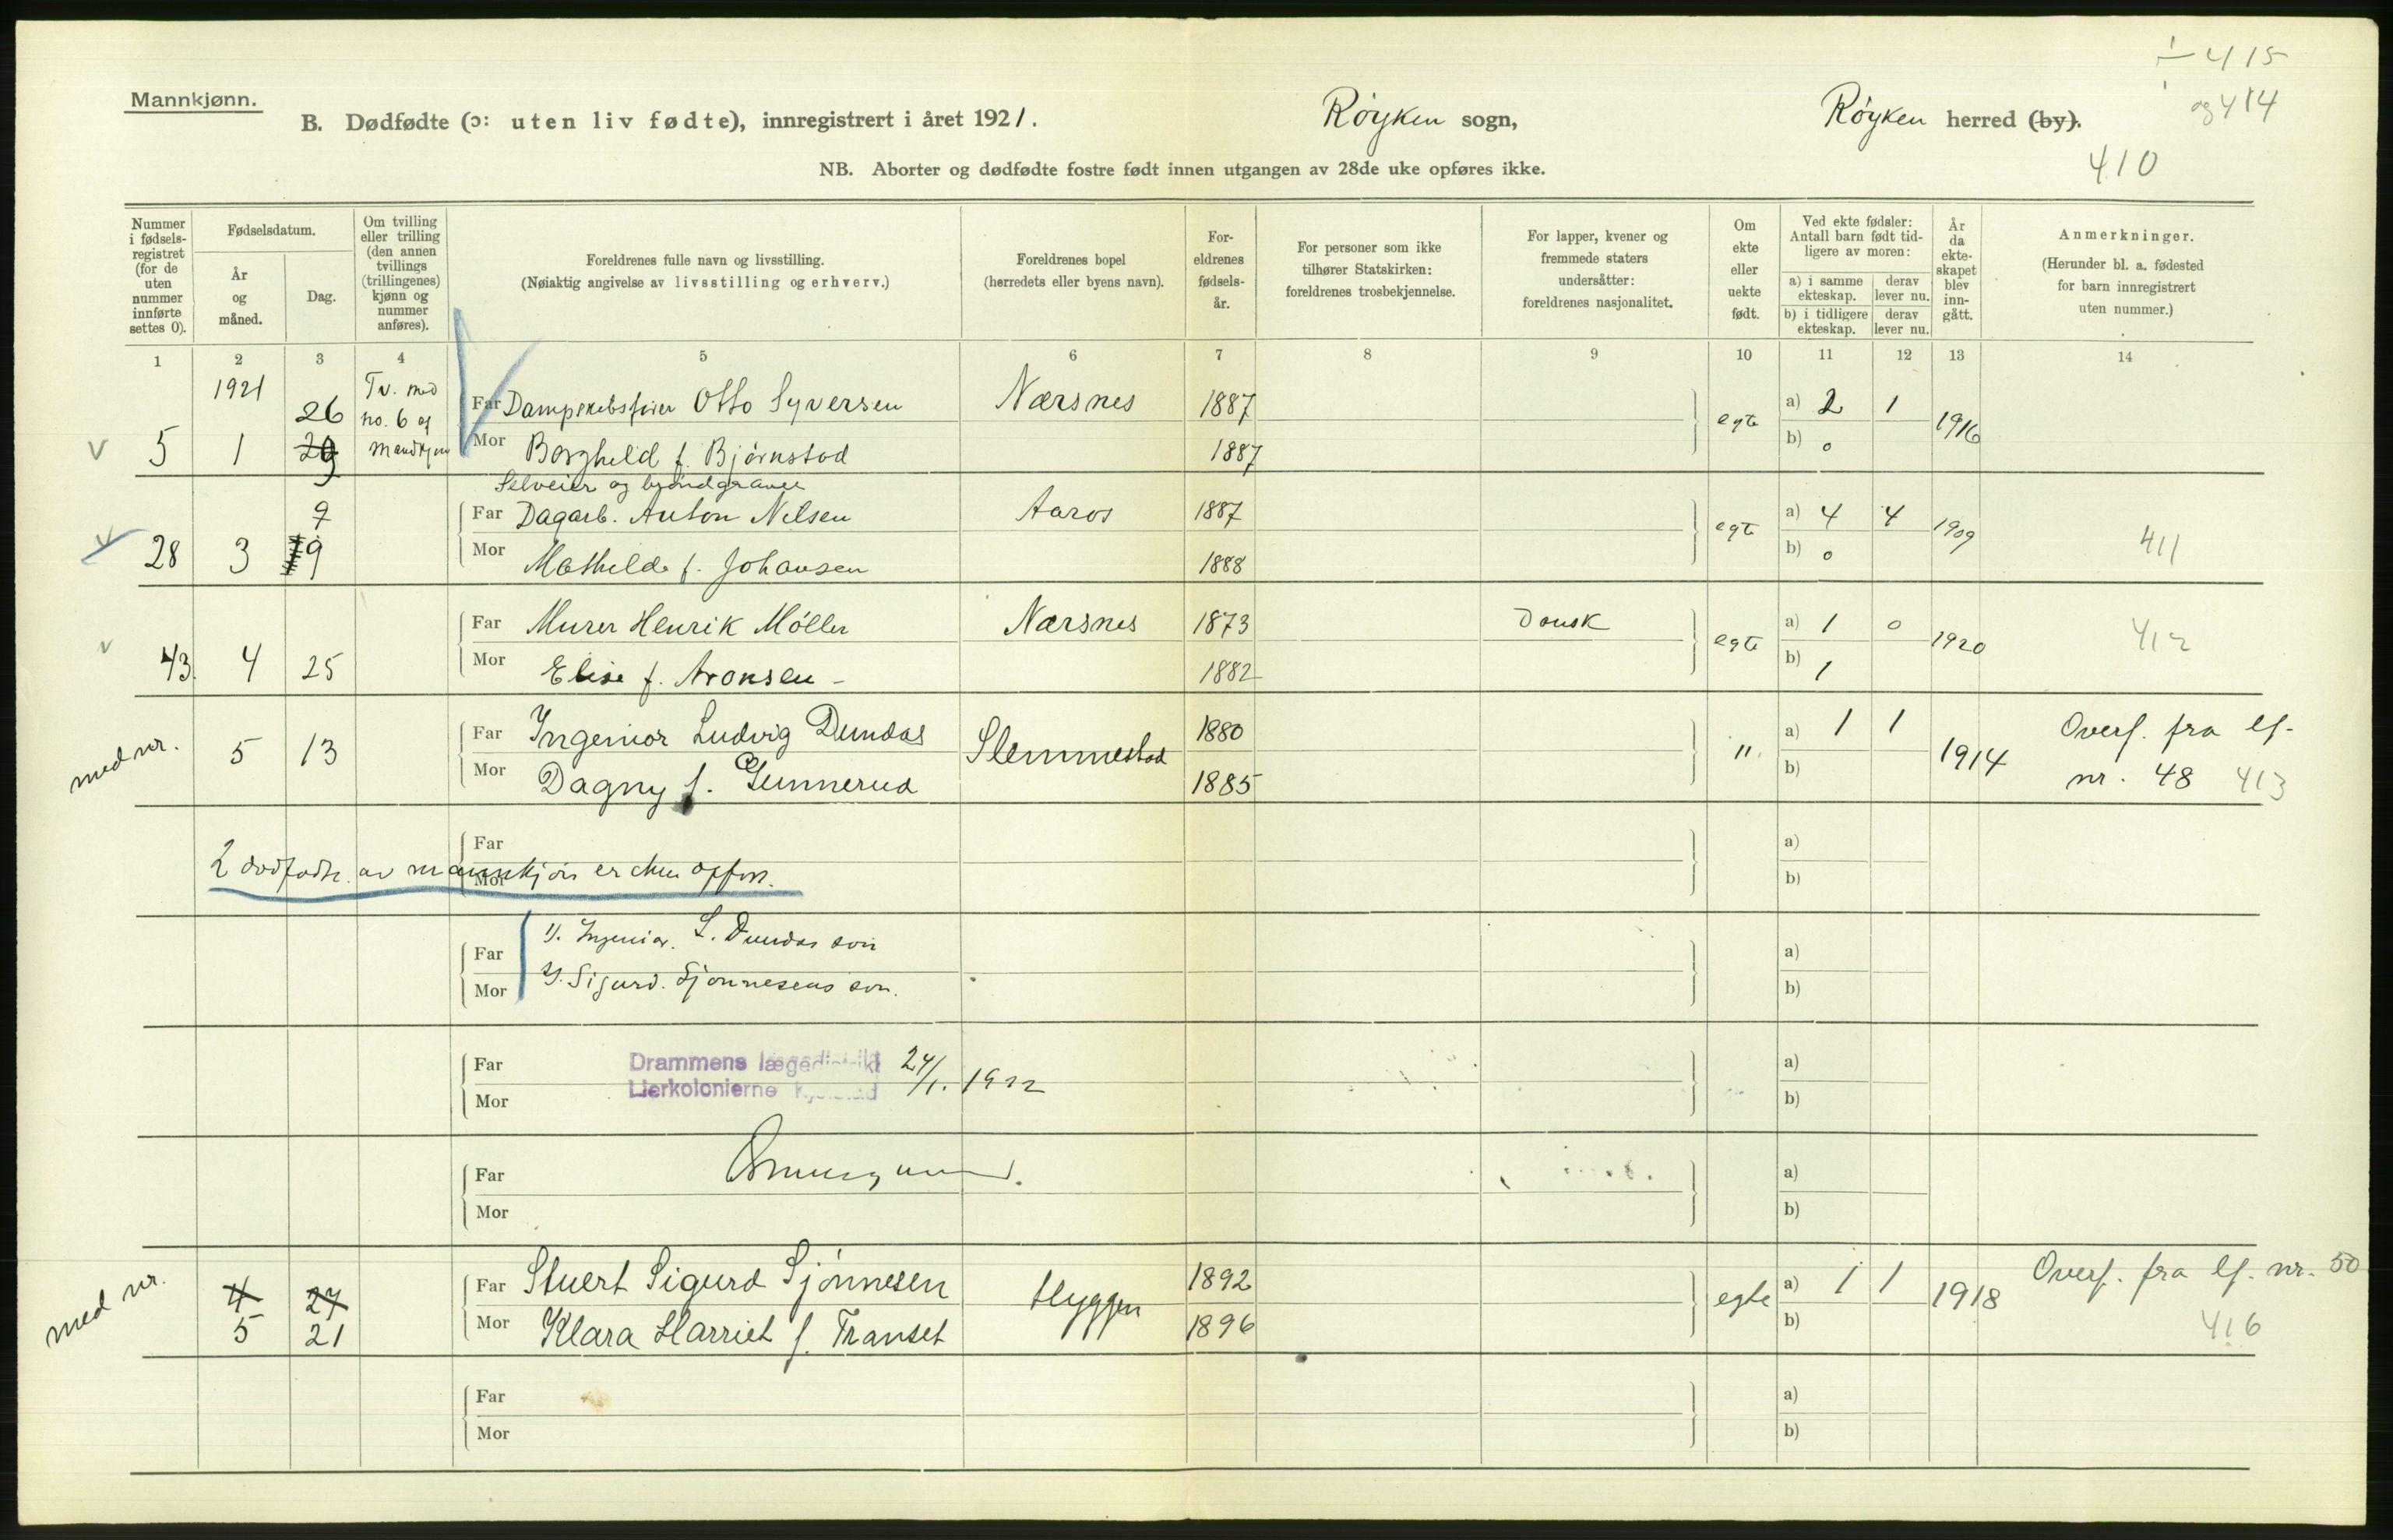 ÷ 415
og 414
410
Mannkjønn.
B. Dødfødte (ɔ: uten liv fødte), innregistrert i året 1921. Røyken sogn, Røyken herred (by).
NB. Aborter og dødfødte fostre født innen utgangen av 28de uke opføres ikke.
Nummer i fødsels-registret (for de uten nummer innførte settes 0).
Fødselsdatum.
År og måned.
Dag.
Om tvilling eller trilling (den annen tvillings (trillingenes) kjønn og nummer anføres).
Foreldrenes fulle navn og livsstilling.
(Nøiaktig angivelse av livsstilling og erhverv.)
Foreldrenes bopel
(herredets eller byens navn).
For-eldrenes fødsels-år.
For personer som ikke tilhører Statskirken: foreldrenes trosbekjennelse.
For lapper, kvener og fremmede staters undersåtter: foreldrenes nasjonalitet.
Om ekte eller uekte født.
Ved ekte fødsler: Antall barn født tid-ligere av moren:
a) i samme ekteskap. derav lever nu.
b) i tidligere ekteskap. derav lever nu.
År da ekte-skapet blev inn-gått.
Anmerkninger.
(Herunder bl. a. fødested for barn innregistrert uten nummer.)
1 2 3 4 5 6 7 8 9 10 11 12 13 14
1921 26 Tv. med no. 6 af
Far Otto Syversen Nærsnes 1887 egte a) 2 1 1916
v 5 1 29 Mor Borghild f. Bjørnstad 1887 b) 0
Selveier og brøndgraver
9 Far Dagarb. Anton Nilsen Aaros 1887 egte a) 4 4 1909
28 3 9 Mor Mathilde f. Johansen 1888 b) 0 411
Far Murer Henrik Møller Nærsnes 1873 Dansk egte a) 1 0 1920 412
v 43. 4 25 Mor Elise f. Aronsen - 1882 b) 1
med nr. 5 13 Far Ingeniør Ludvig Dundas Slemmestad 1880 " a) 1 1 1914 Overf. fra lf.
Mor Dagny f. Gunnerud 1885 b) nr. 48 413
Far a)
2 dødfødte av mannkjøn er
Mor b)
Far 1). Ingeniør. L. Dundas søn a)
Mor 2). Sigurd. Sjønnesens søn. b)
Far Drammens lægedistrikt 24/1. 1922 a)
Mor Lierkolonierne b)
Far a)
Mor b)
med nr. 4 27 Far Stuert Sigurd Sjønnesen Hyggen 1892 egte a) 1 1 1918 Overf. fra lf. nr. 50
5 21 Mor Klara Harriet f. Transet 1896 b) 416
Far a)
Mor b)